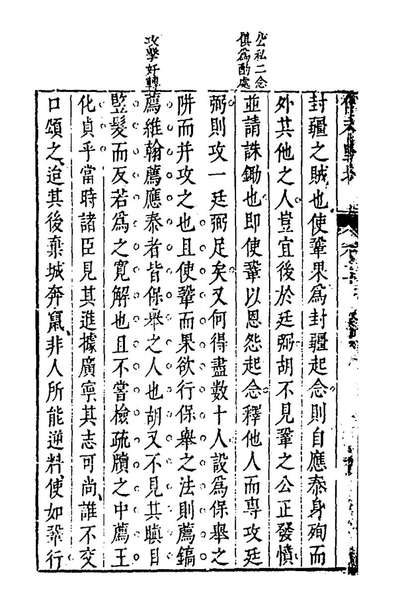 公私二念
俱爲酌處
攻擊奸轉
封疆之賊也使鞏果爲封疆起念則自應泰身殉而
外其他之人豈宜後於廷弼胡不見鞏之公正發憤
並請誅鋤也即使鞏以恩怨起念釋他人而專攻廷
弼則攻一廷弼足矣又何得盡數十人設爲保舉之
阱而并攻之也且使鞏而果欲行保舉之法則薦鎬
薦維翰薦應泰者皆保舉之人也胡又不見其瞋目
豎髮而反若爲之寬解也且不嘗檢疏牘之中薦王
化貞乎當時諸臣見其進據廣寧其志可尚誰不交
口頌之迨其後棄城奔竄非人所能逆料使如鞏行